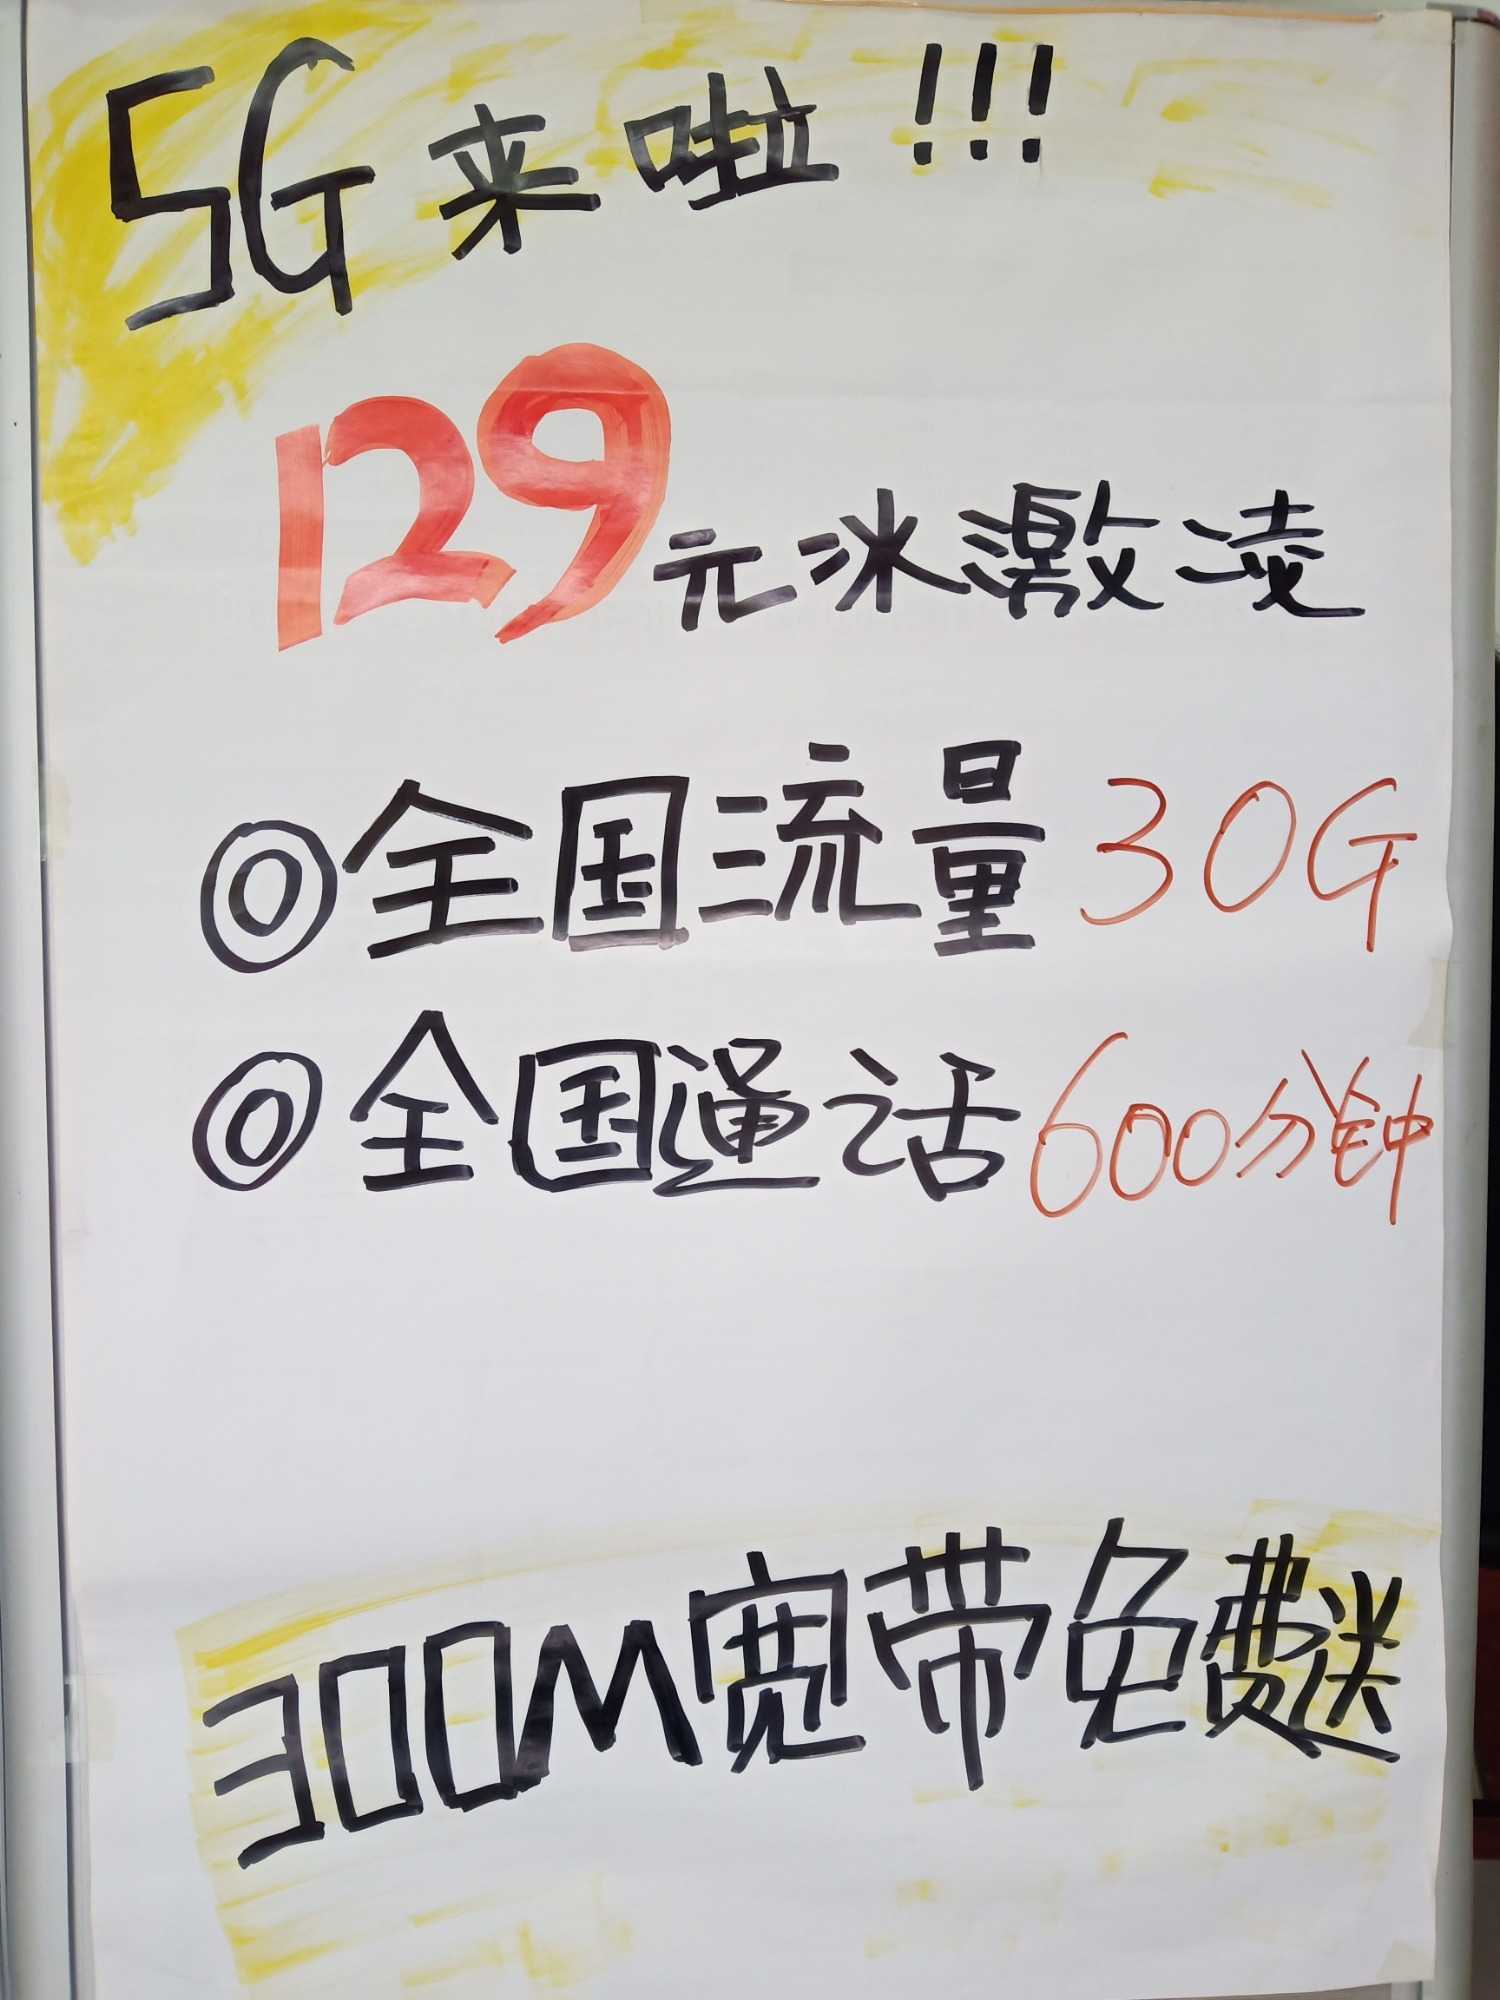 5G来啦!!!
129元冰激凌
◎全国流量30G
◎全国通话600分钟
300M宽带免费送